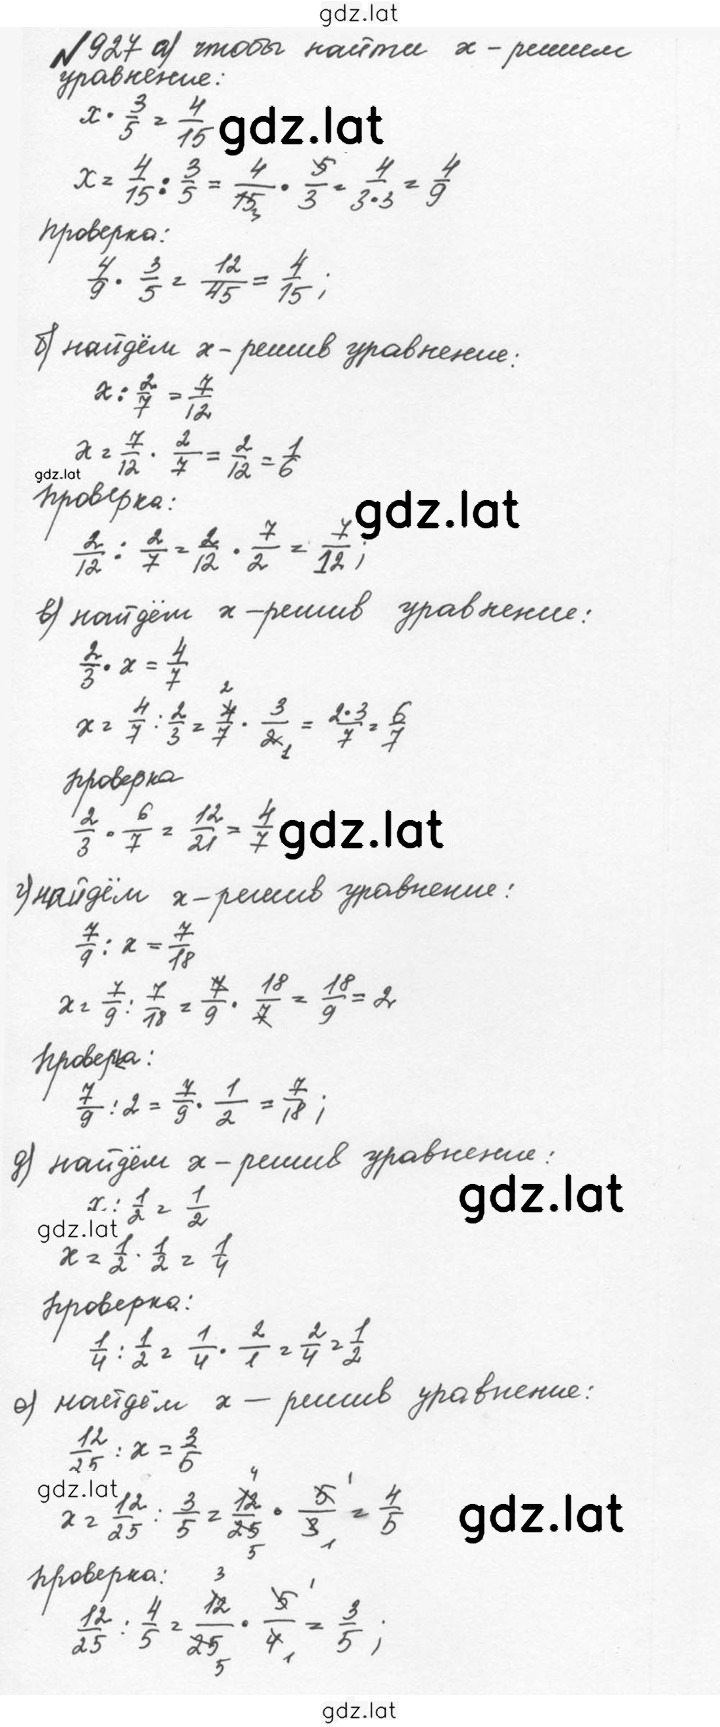 gdz.lat
№927 а) чтобы найти x - решим
уравнение:
x · 3/5 = 4/15 gdz.lat
x = 4/15 : 3/5 = 4/15 3 · 5/3 = 4/3·3 = 4/9
Проверка:
4/9 · 3/5 = 12/45 = 4/15;
б) найдём x - решив уравнение:
x : 2/7 = 7/12
x = 7/12 · 2/7 = 2/12 = 1/6
gdz.lat
Проверка: gdz.lat
2/12 : 2/7 = 2/12 · 7/2 = 7/12;
в) найдём x - решив уравнение:
2/3 · x = 4/7
x = 4/7 : 2/3 = 4/7 2 · 3/2 1 = 2·3/7 = 6/7
Проверка
2/3 · 6/7 = 12/21 = 4/7 gdz.lat
г) найдём x - решив уравнение:
7/9 : x = 7/18
x = 7/9 : 7/18 = 7/9 · 18/7 = 18/9 = 2
Проверка:
7/9 : 2 = 7/9 · 1/2 = 7/18;
д) найдём x - решив уравнение:
x : 1/2 = 1/2 gdz.lat
gdz.lat
x = 1/2 · 1/2 = 1/4
Проверка:
1/4 : 1/2 = 1/4 · 2/1 = 2/4 = 1/2
е) найдём x - решив уравнение:
12/25 : x = 3/5
gdz.lat
x = 12/25 : 3/5 = 12/25 4 5 · 5/3 1 1 = 4/5 gdz.lat
Проверка:
12/25 : 4/5 = 12/25 3 5 · 5/4 1 1 = 3/5;
gdz.lat